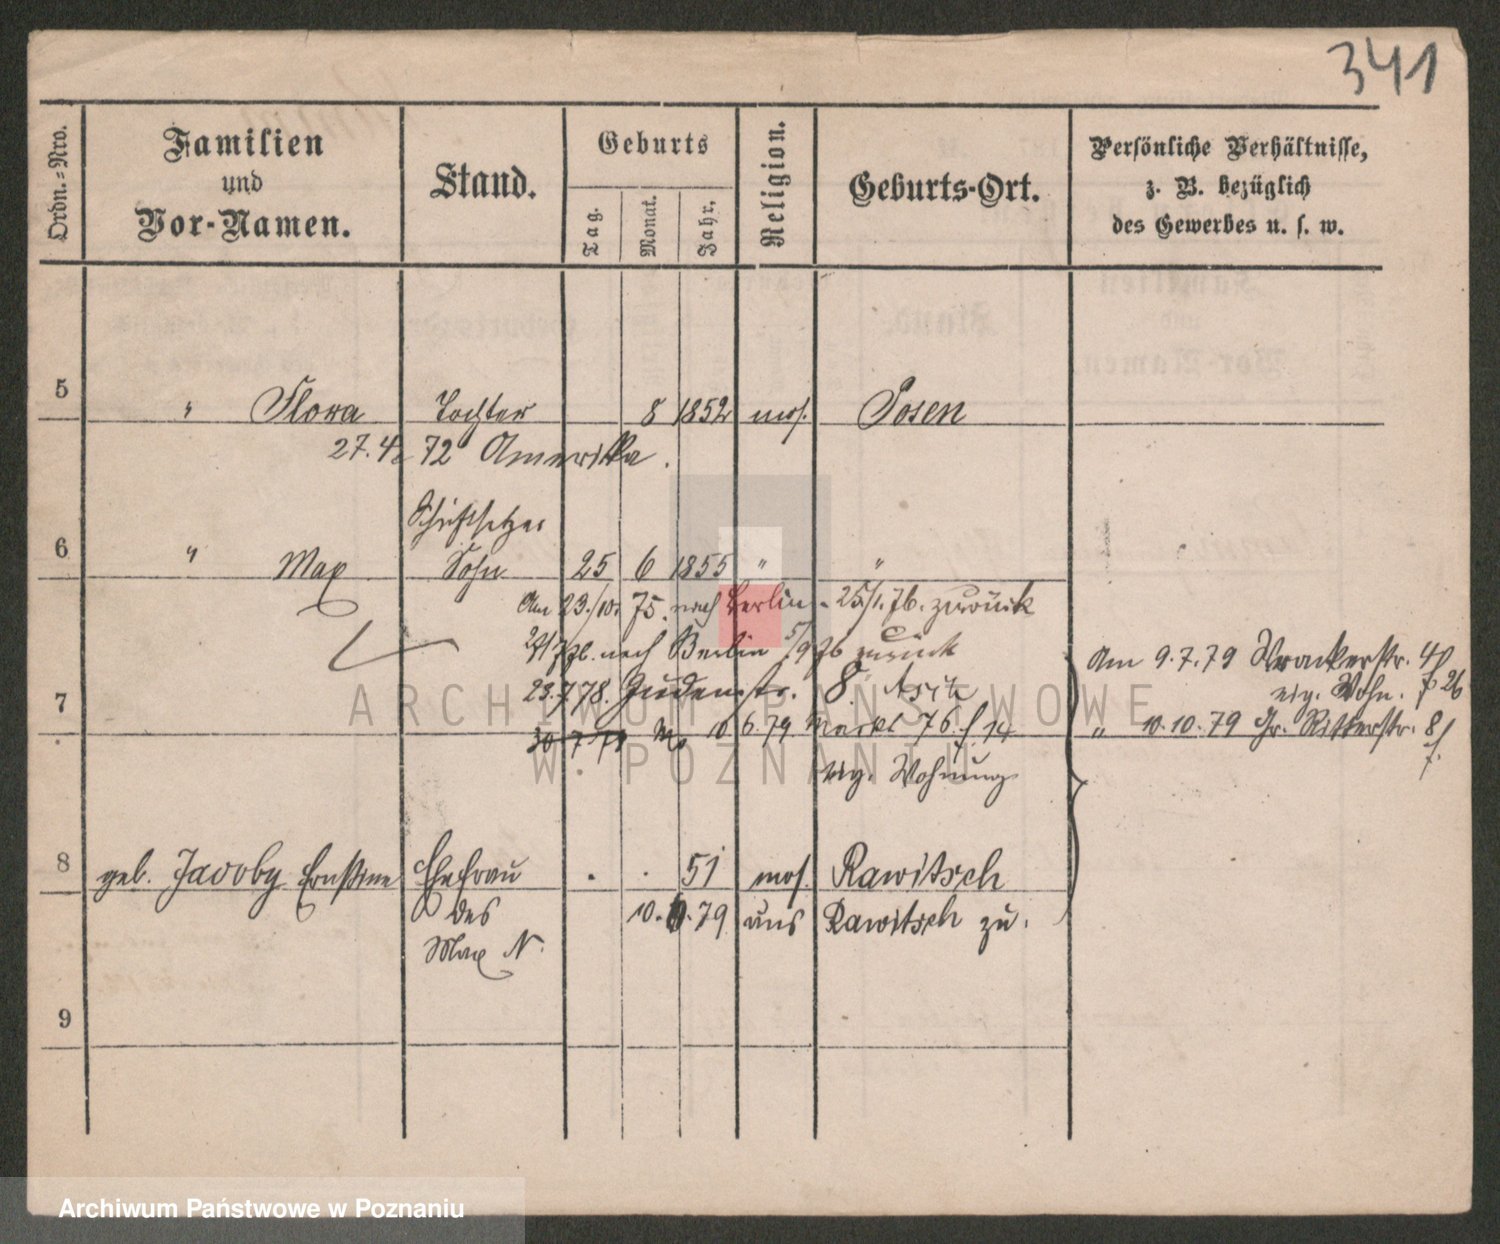 341
Ordn.-Nro.
Familien
und
Vor-Namen.
Stand.
Geburts
Tag.
Monat.
Jahr.
Religion.
Geburts-Ort.
Persönliche Verhältnisse,
z. B. bezüglich
des Gewerbes u. s. w.
5 " Flora Tochter 8 1852 mos. Posen
27.4. 72 Amerika.
Schriftsetzer
6 " Max Sohn 25 6 1855 " "
Am 23./10. 75. nach Berlin - 25/1.76. zurück
nach Berlin 5/9 76 zurück
23.7.78. Judenstr. 8.
10 6.79 Markt 76.
eig. Wohnung
7
Am 9.7.79 Wronkerstr. 4
eig. Wohn.
" 10.10.79 Gr. Ritterstr. 8
8 geb. Jacoby Ernstine Ehefrau . . 51 mos. Rawitsch
des 10. 79 aus Rawitsch zu.
Max N.
9
ARCHIWUM PAŃSTWOWE
W POZNANIU
Archiwum Państwowe w Poznaniu